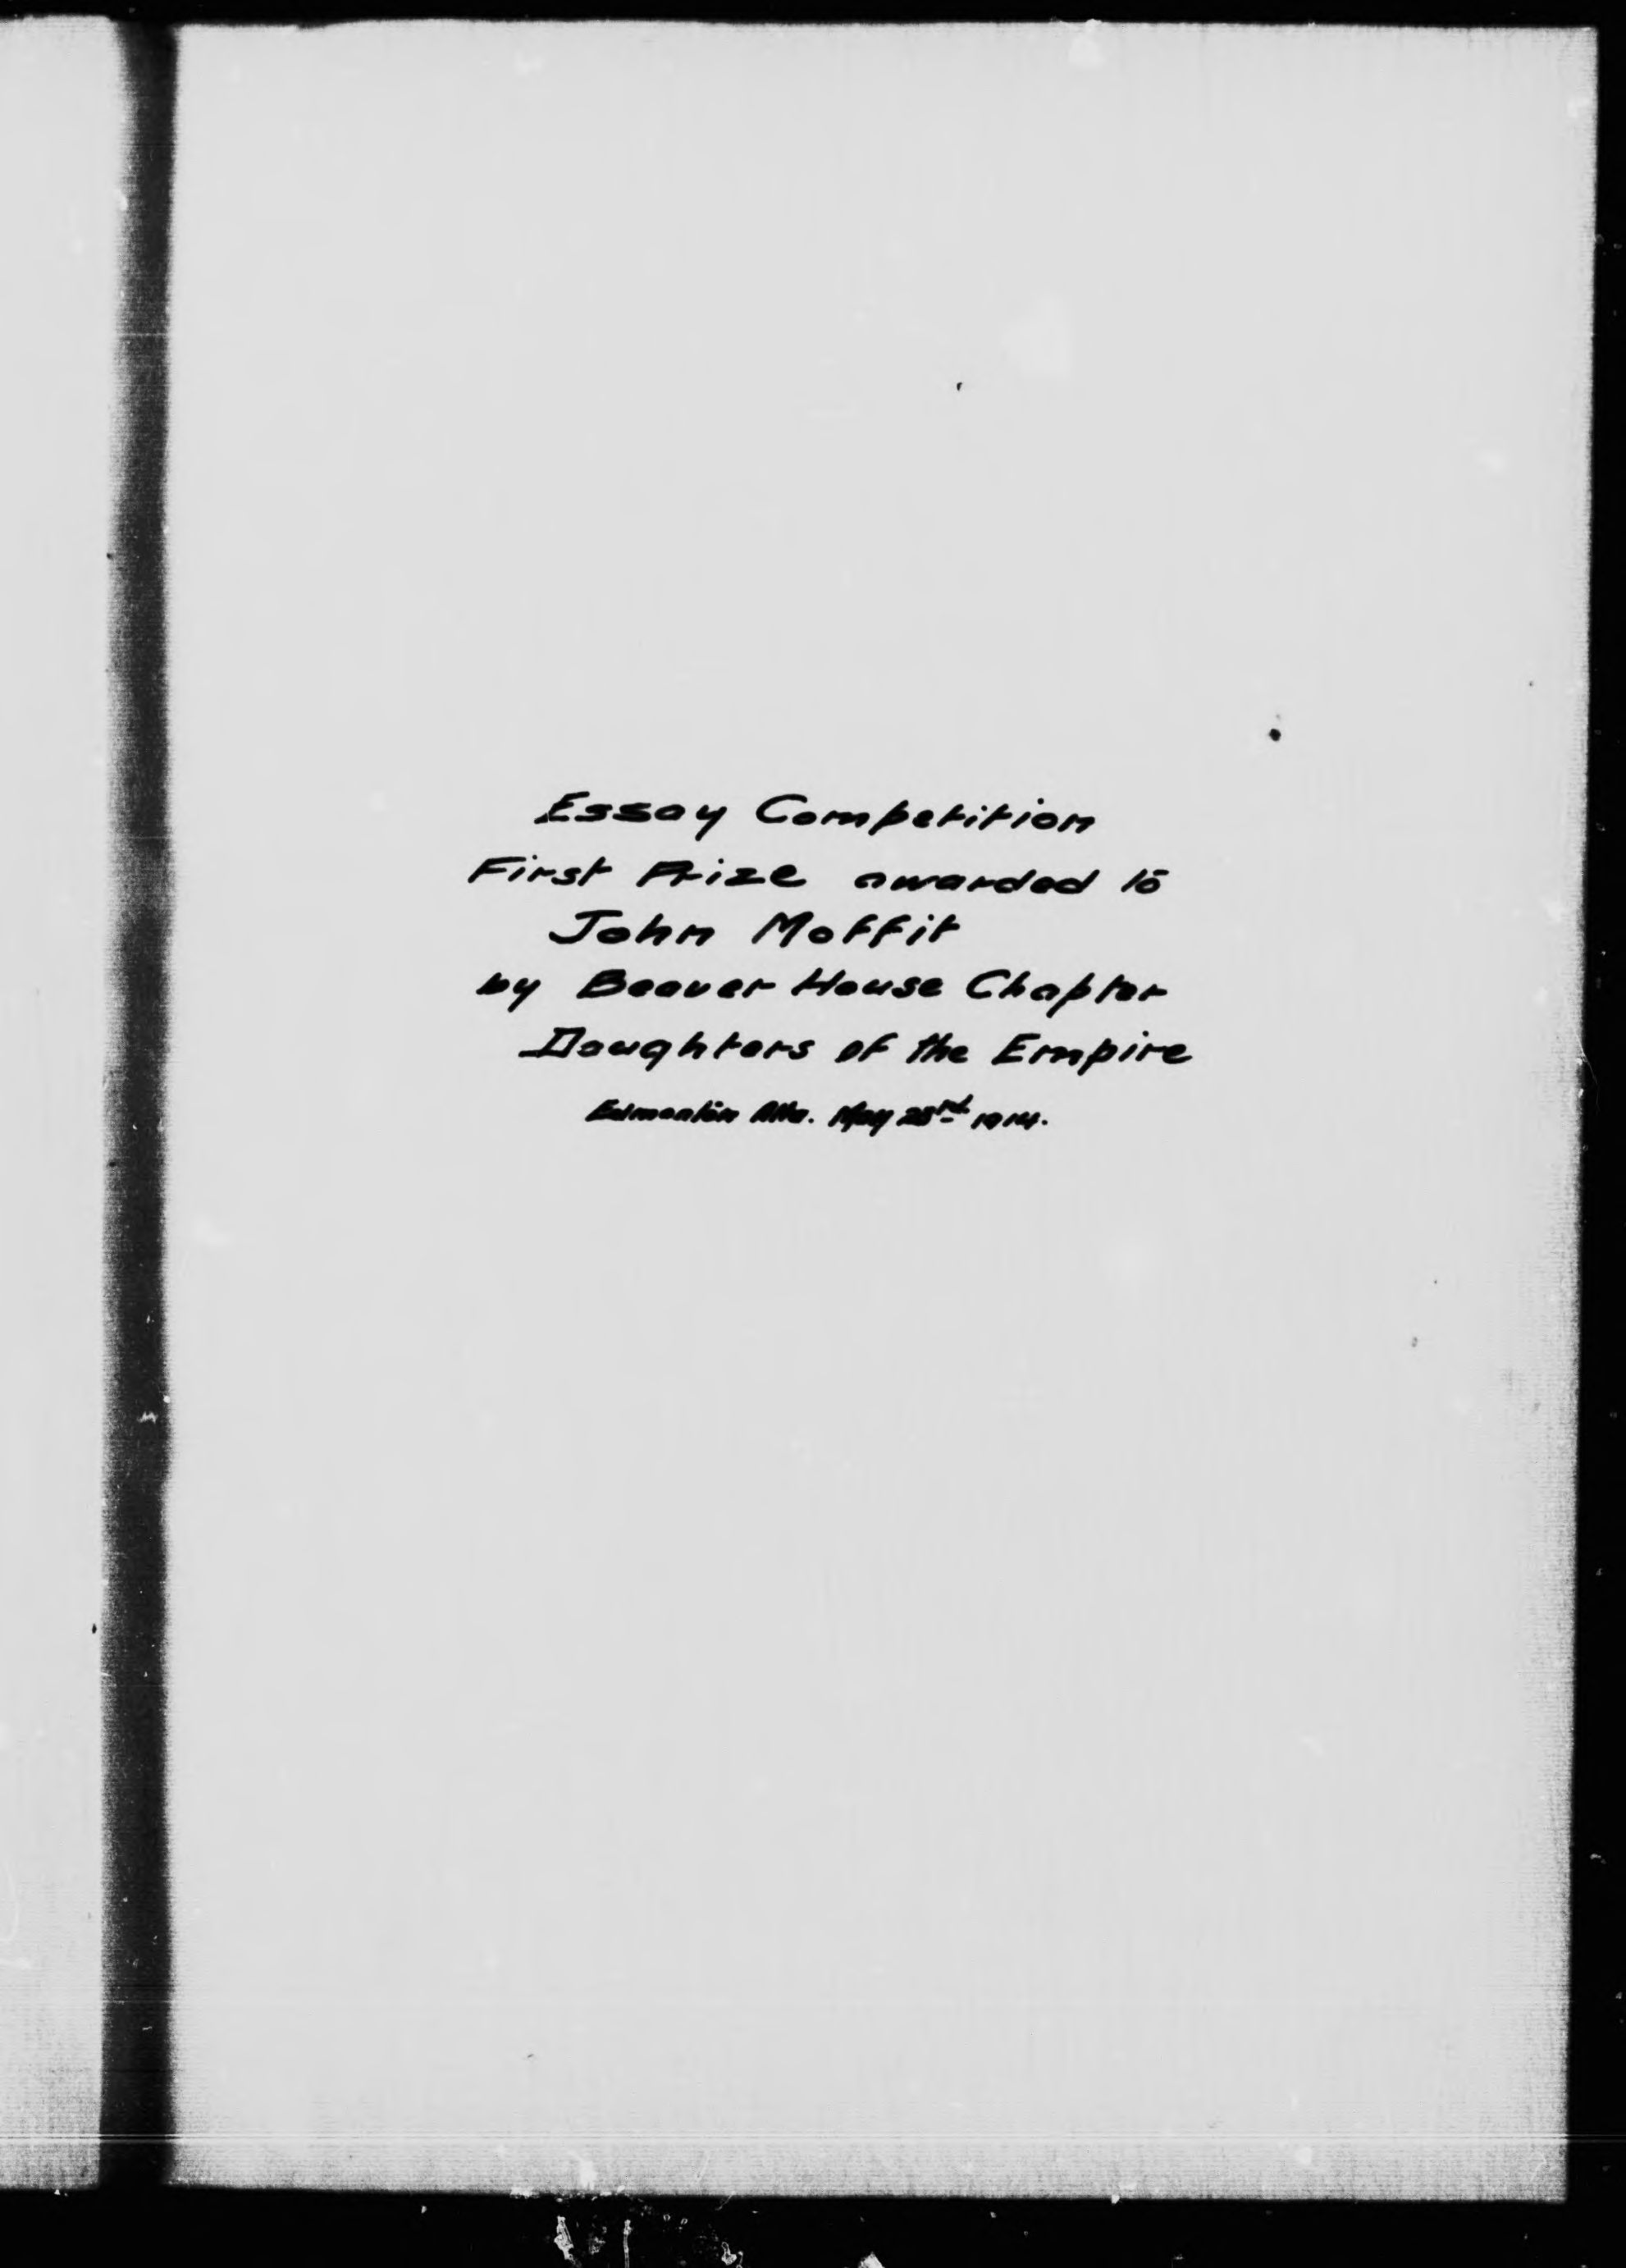 Essay Competition
First Prize awarded to
John Moffit
by Beaver House Chapter
Daughters of the Empire
Edmonton Alta. May 1914.